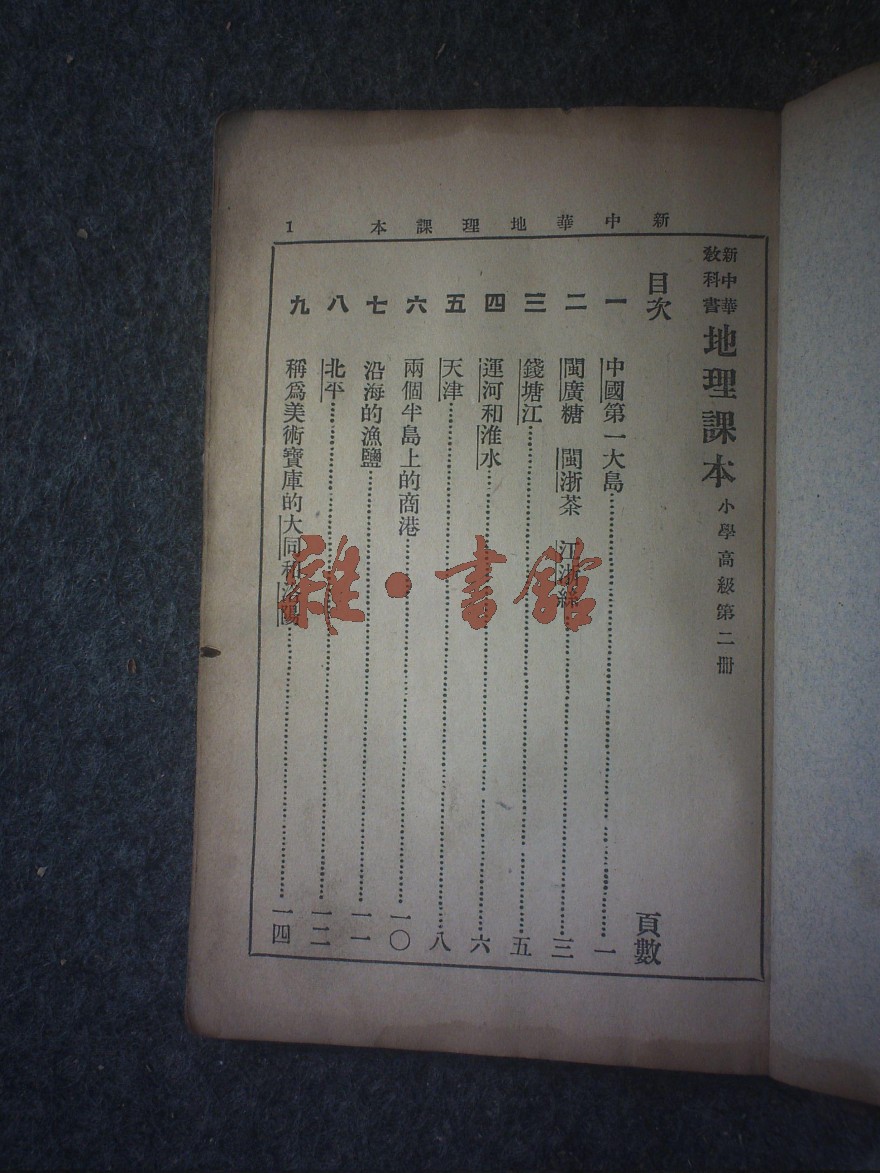 新中華地理課本 1
新中華教科書 地理課本 小學高級第二冊
目次 頁數
一 中國第一大島 一
二 閩廣糖 閩浙茶 江浙絲 三
三 錢塘江 五
四 運河和淮水 六
五 天津 八
六 兩個半島上的商港 一〇
七 沿海的漁鹽 一一
八 北平 一二
九 稱爲美術寶庫的大同和洛陽 一四
雜·書館